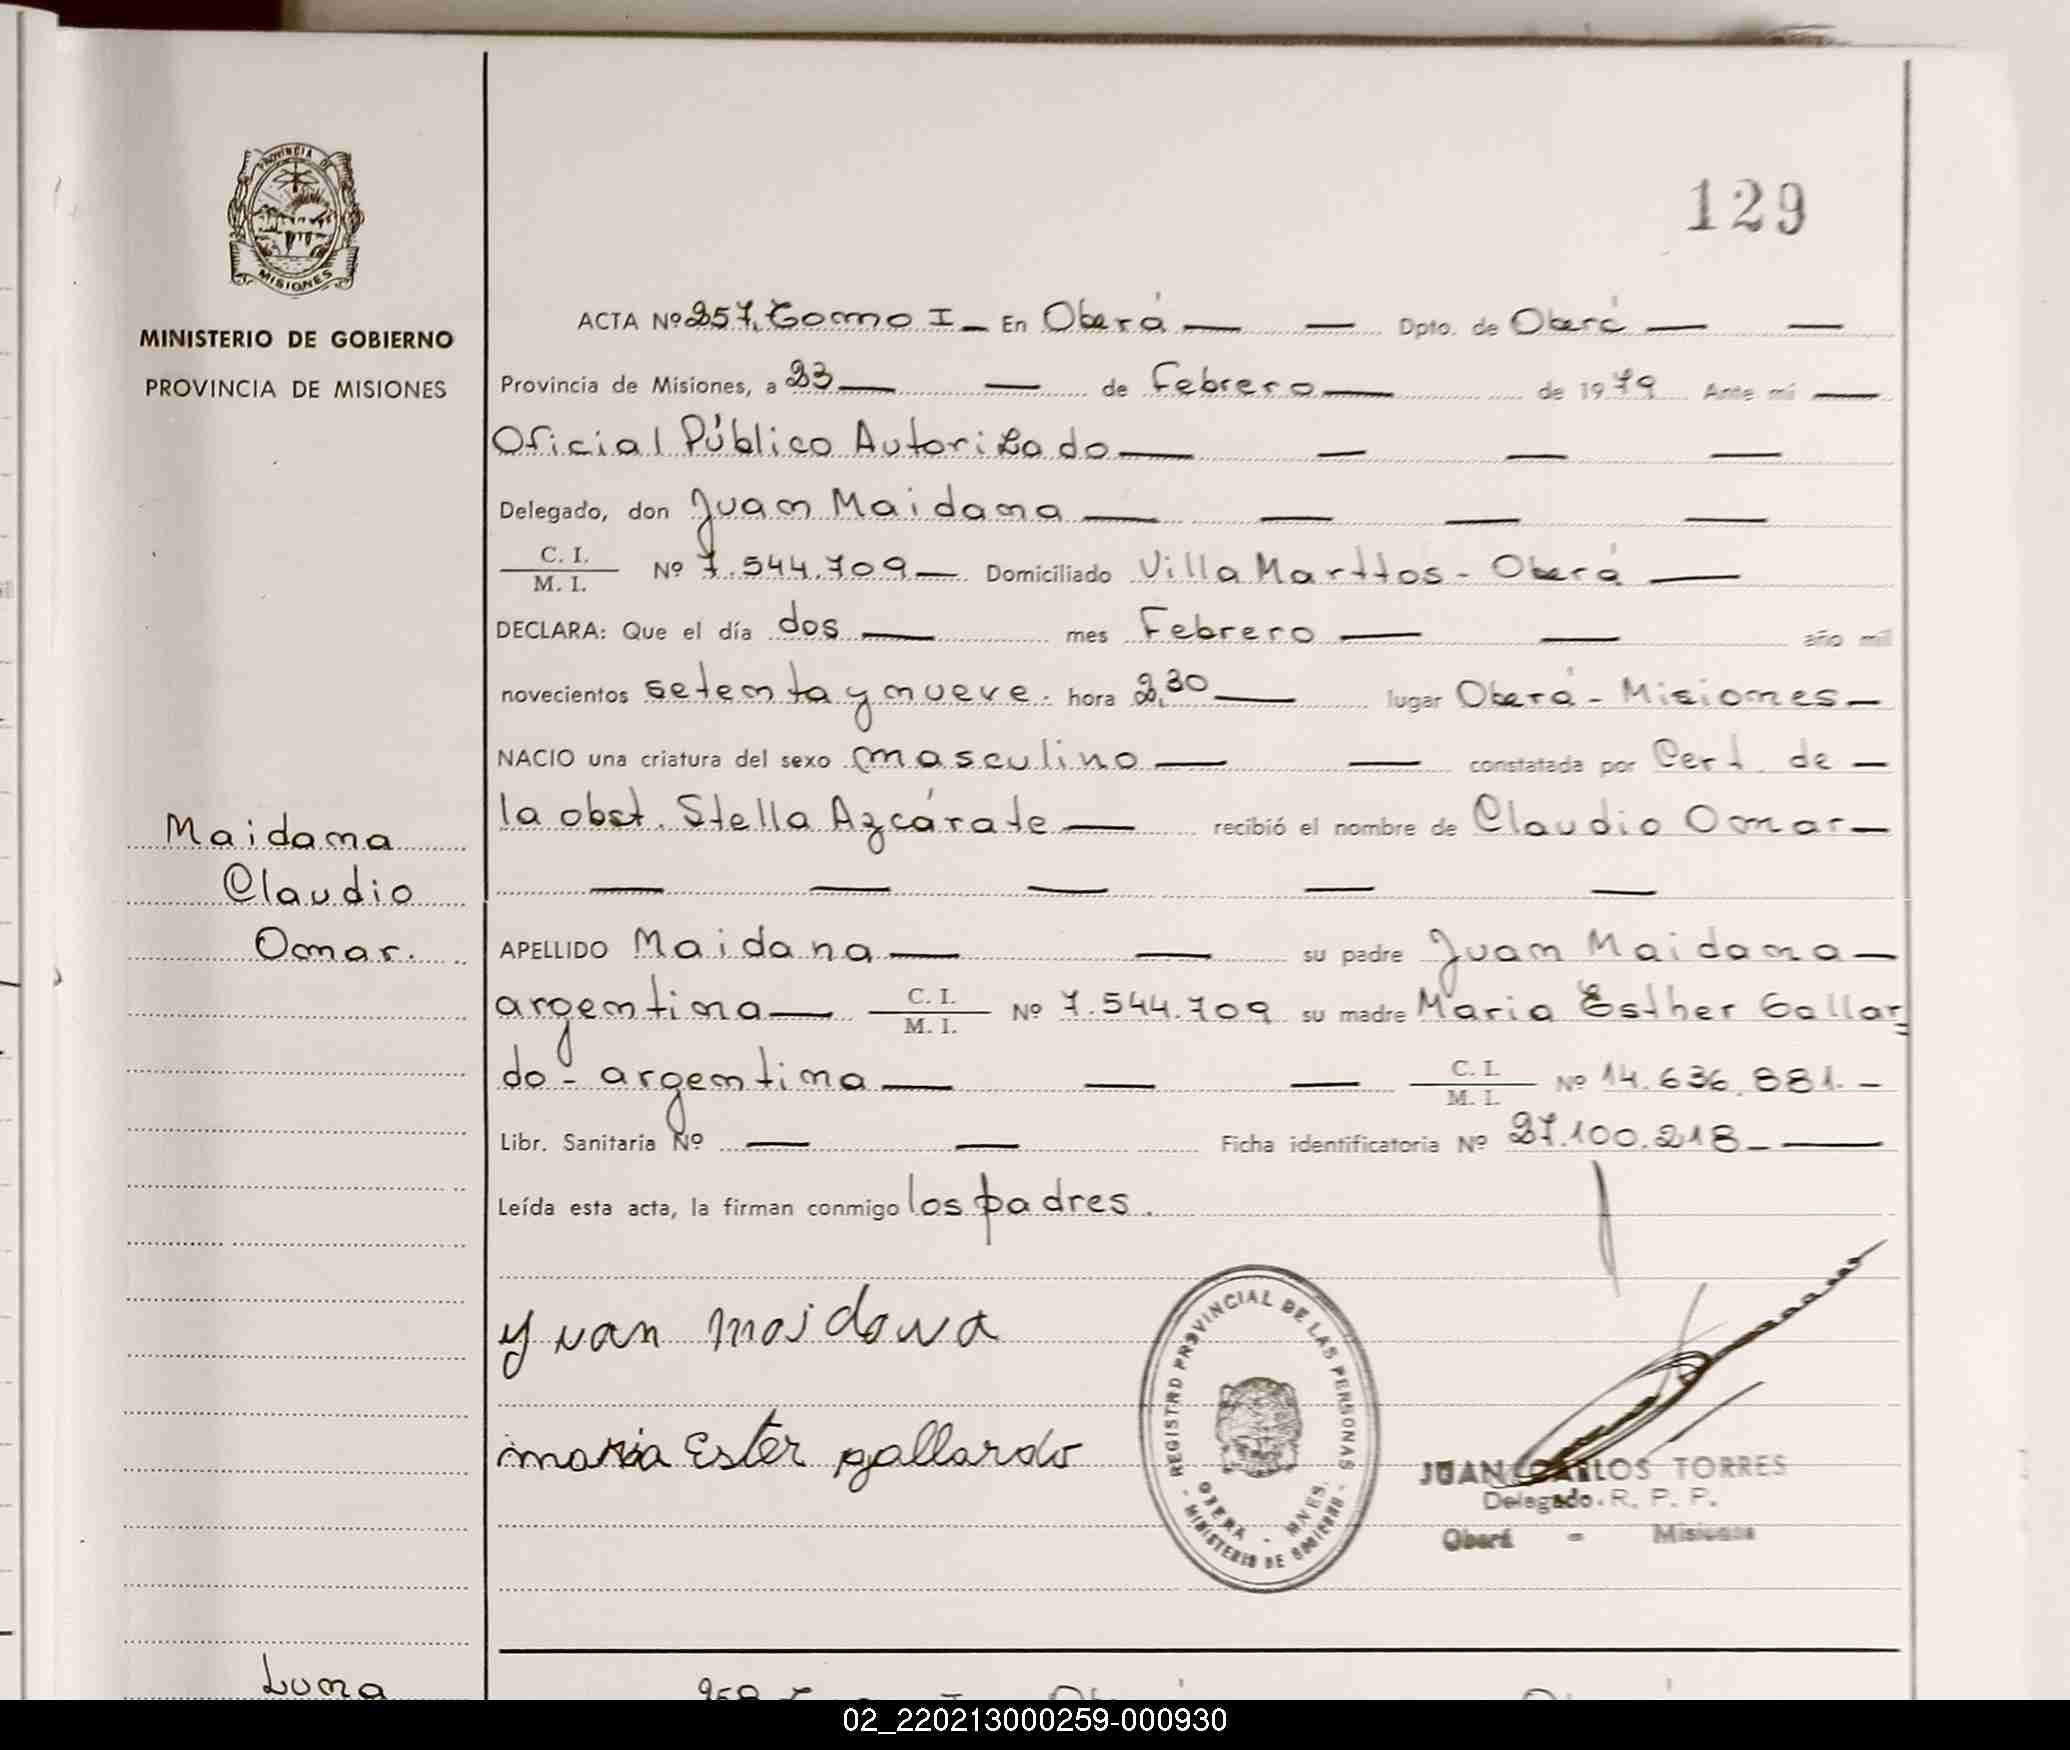 129
PROVINCIA DE
MISIONES
MINISTERIO DE GOBIERNO
PROVINCIA DE MISIONES
ACTA Nº 257, Tomo I_ En Oberá — — Dpto. de Oberá — —
Provincia de Misiones, a 23 — — de Febrero — de 1979 Ante mí —
Oficial Público Autorizado — — — —
Delegado, don Juan Maidana — — — —
C. I.
M. I. Nº 7.544.709 — Domiciliado Villa Marttos - Oberá —
DECLARA: Que el día dos — mes Febrero — — año mil
novecientos setenta y nueve. hora 2,30 — lugar Oberá - Misiones —
NACIO una criatura del sexo masculino — — constatada por Cert. de —
la obst. Stella Azcárate — recibió el nombre de Claudio Omar —
— — — — —
Maidana
Claudio
Omar.
APELLIDO Maidana — — su padre Juan Maidana —
argentina — C. I.
M. I. Nº 7.544.709 su madre Maria Esther Gallar=
do - argentina — — — C. I.
M. I. Nº 14.636.881. -
Libr. Sanitaria Nº — — Ficha identificatoria Nº 27.100.218_ —
Leída esta acta, la firman conmigo los padres.
Yuan maidana
maria Ester gallardo
REGISTRO PROVINCIAL DE LAS PERSONAS
OBERA - MNES.
- MINISTERIO DE GOBIERNO -
JUAN CARLOS TORRES
Delegado. R. P. P.
Oberá - Misiones
Luna
258
02_220213000259-000930